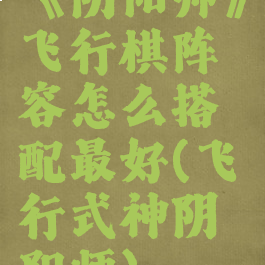 《阴阳师》
飞行棋阵
容怎么搭
配最好(飞
行式神阴
阳师)